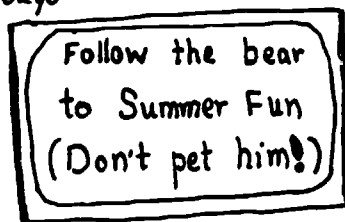 Follow the bear
to Summer Fun
(Don't pet him!)